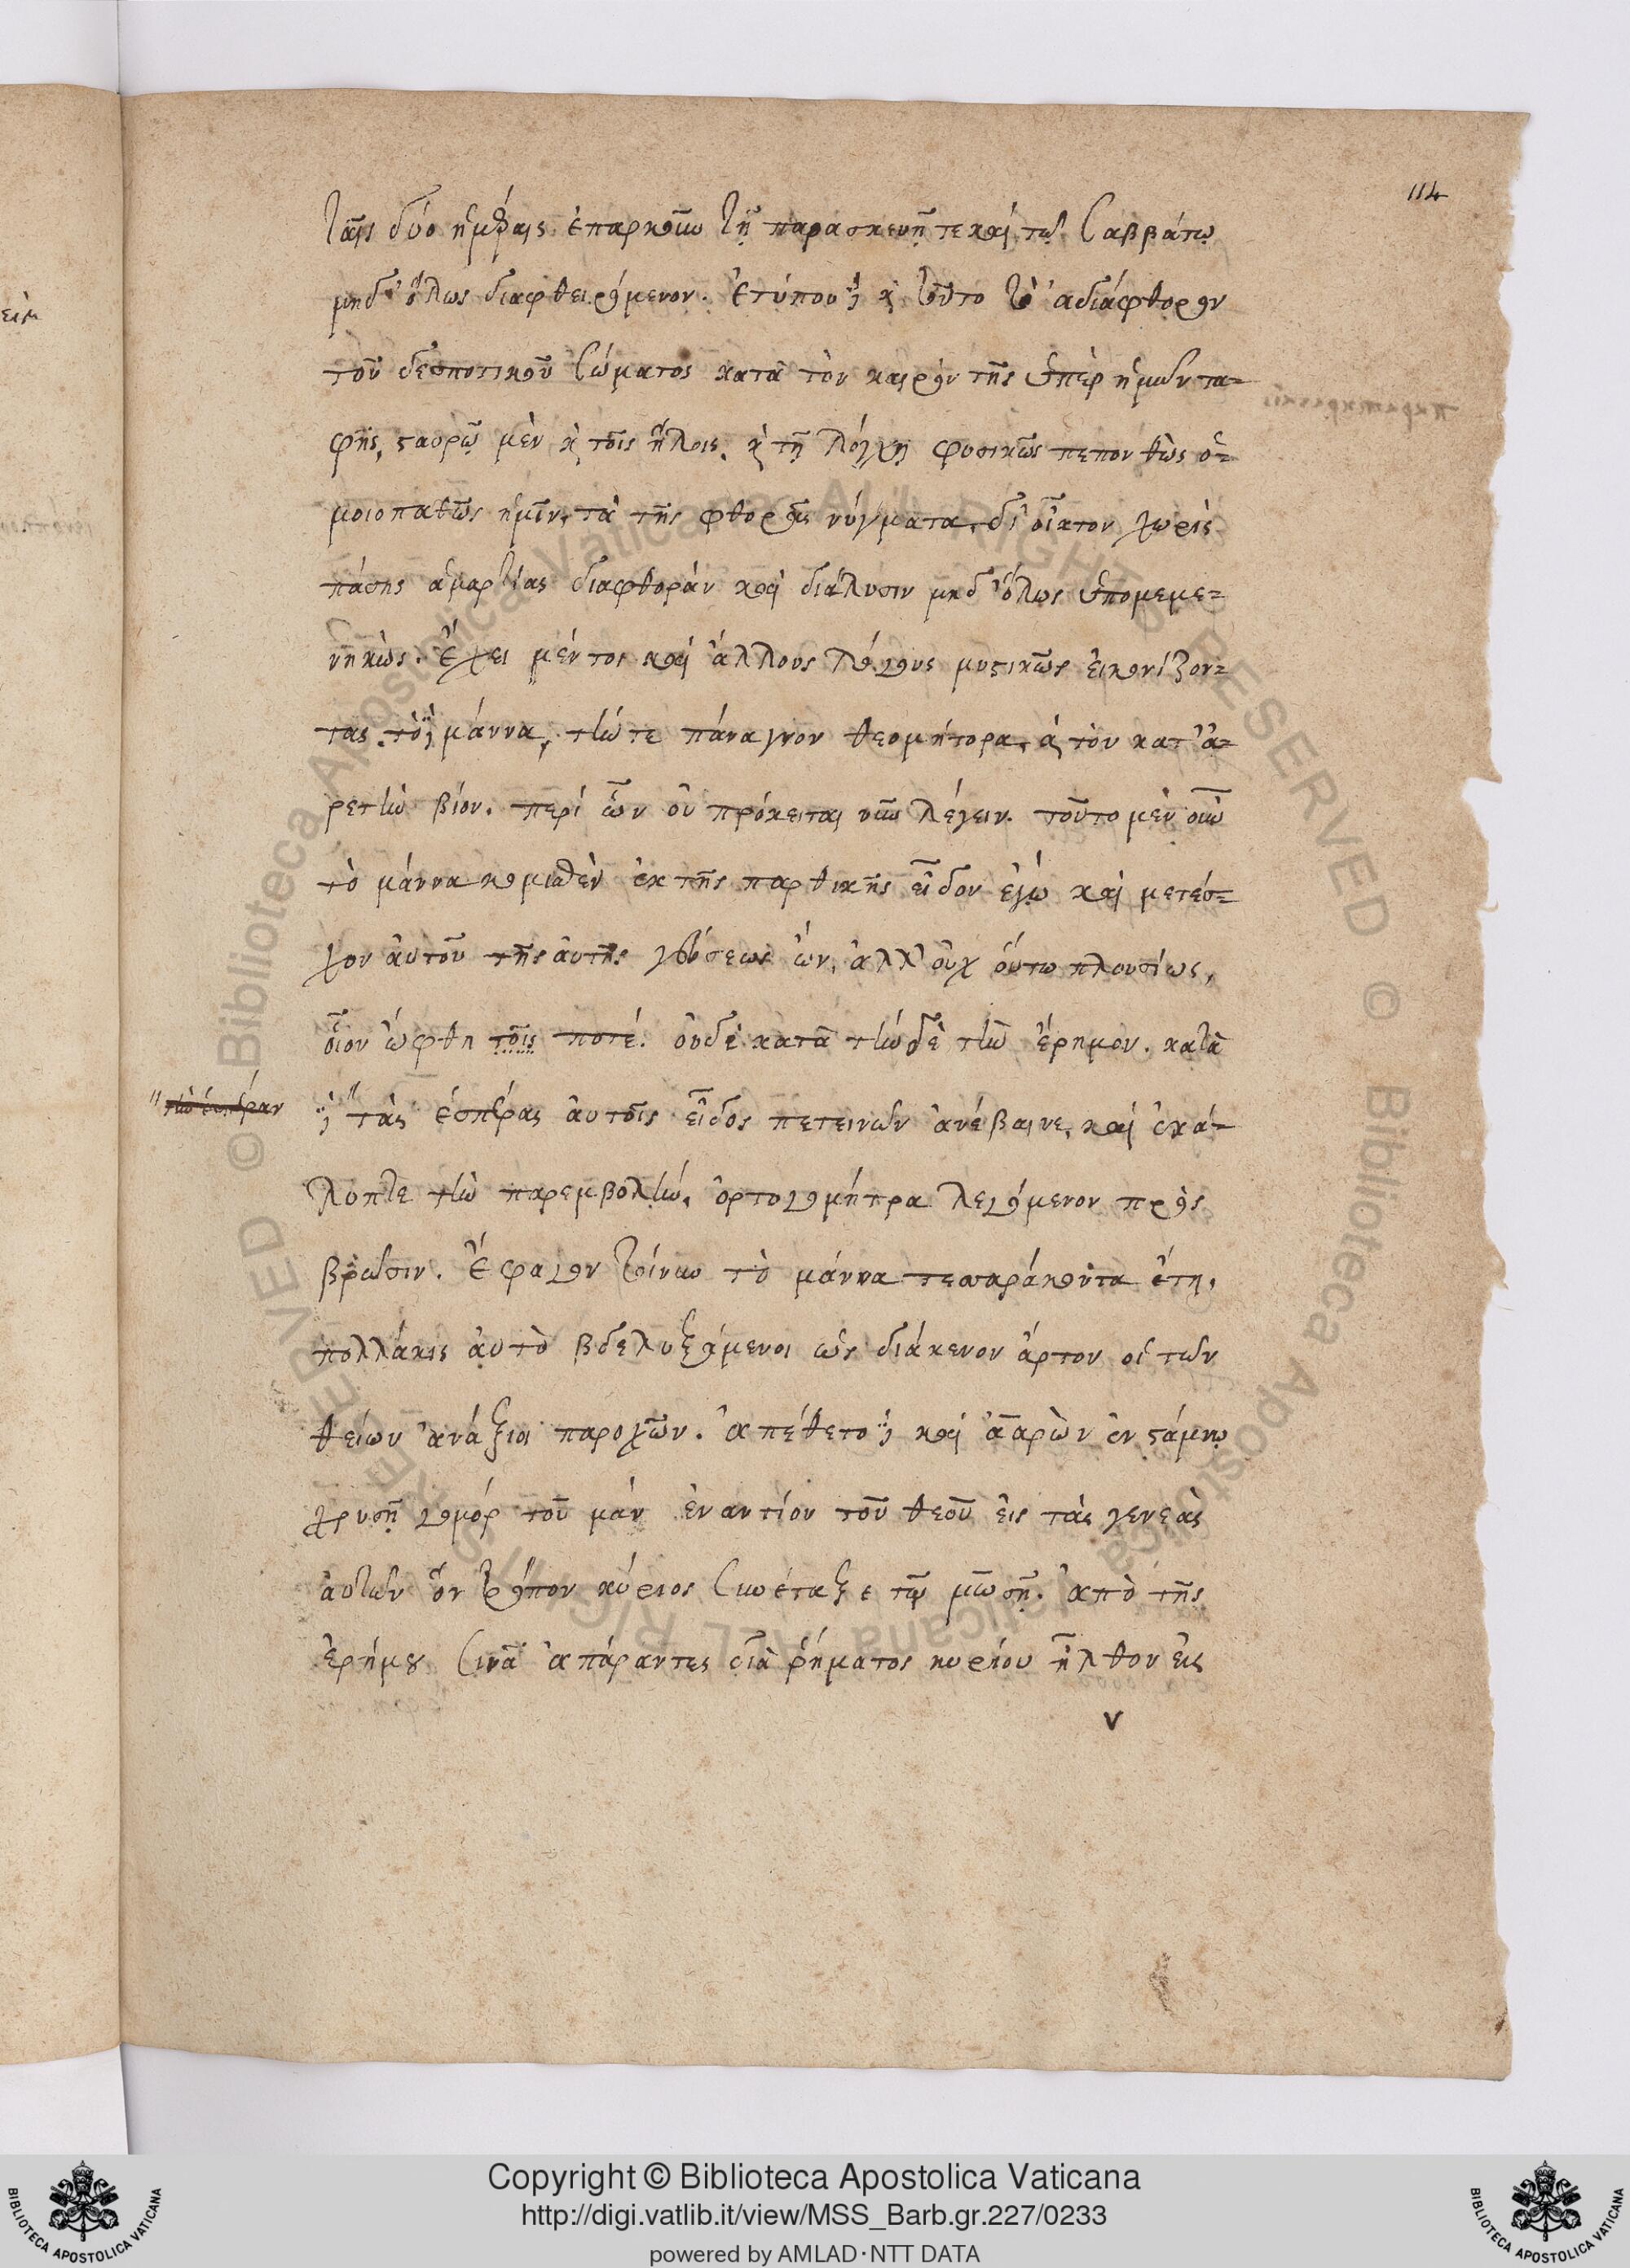 114
ταῖς δύο ἡμέραις ἐπαρκοῦν τῇ παρασκευῇ τε καὶ τῷ Σαββάτῳ
μηδ' ὅλως διαφθειρόμενον. ἐτύπου δὲ καὶ τοῦτο τὸ ἀδιάφθορον
τοῦ δεσποτικοῦ σώματος κατὰ τὸν καιρὸν τῆς ὑπὲρ ἡμῶν τα-
φῆς, σαυρῷ μὲν καὶ τοῖς ἥλοις, καὶ τῇ λόγχῃ φυσικῶς πεπονθὼς ὁ-
μοιοπαθῶς ἡμῖν, τὰ τῆς φθορᾶς νύγματα, χωρὶς
πάσης ἁμαρτίας διαφθορὰν καὶ διάλυσιν μηδ' ὅλως ὑπομεμε-
νηκώς. Ἔχει μέντοι καὶ ἄλλους λόγους μυστικῶς εἰκονίζον-
τας τὸ δὲ μάννα, τήν τε πάναγνον θεομήτορα, καὶ τὸν κατ' ἀ-
ρετὴν βίον. περὶ ὧν οὐ πρόκειται νῦν λέγειν. τοῦτο μὲν οὖν
τὸ μάννα κομισθὲν ἐκ τῆς παρθικῆς εἶδον ἐγὼ καὶ μετέσ-
χον αὐτοῦ τῆς αὐτῆς γεύσεως ὤν, ἀλλ' οὐχ οὕτω πλουσίως,
οἷον ὤφθη τοῖς ποτέ. οὐδὲ κατὰ τήνδε τὴν ἔρημον. κατὰ
" τὴν ἑσπέραν
δὲ " τὰς ἑσπέρας αὐτοῖς εἶδος πετεινῶν ἀνέβαινε, καὶ ἐκά-
λυπτε τὴν παρεμβολήν, ὀρτυγομήτρα λεγόμενον πρὸς
βρῶσιν. Ἔφαγον τοίνυν τὸ μάννα τεσσαράκοντα ἔτη,
πολλάκις αὐτὸ βδελυξάμενοι ὡς διάκενον ἄρτον οἱ τῶν
θείων ἀνάξιοι παροχῶν. ἀπέθετο δὲ καὶ ἀαρὼν ἐν στάμνῳ
χρυσῇ γομόρ τοῦ μάν ἐναντίον τοῦ θεοῦ εἰς τὰς γενεὰς
αὐτῶν ὃν τρόπον κύριος συνέταξε τῷ μωσῇ. ἀπὸ τῆς
ἐρήμου Σινᾶ ἀπάραντες διὰ ῥήματος κυρίου ἦλθον εἰς
Copyright © Biblioteca Apostolica Vaticana
http://digi.vatlib.it/view/MSS_Barb.gr.227/0233
powered by AMLAD·NTT DATA
BIBLIOTECA APOSTOLICA VATICANA
BIBLIOTECA APOSTOLICA VATICANA